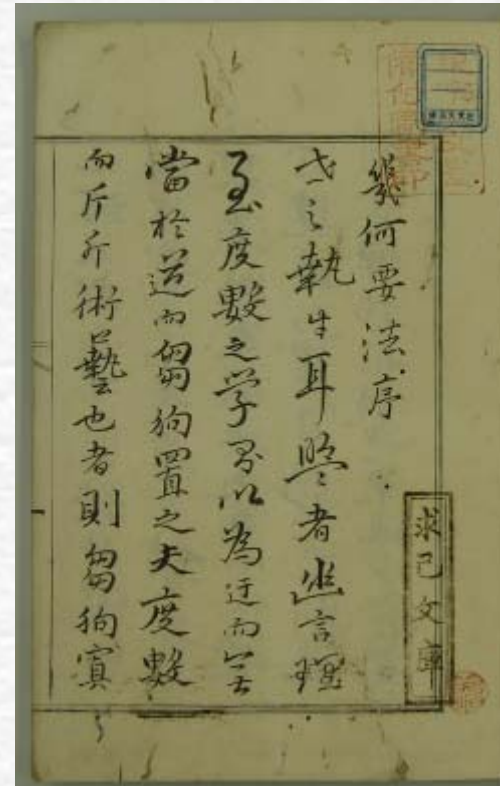 幾何要法序
世之執牛耳盟者言理
至度數之学以為迂而無
當於道而芻狗置之夫度數
而斤斤術藝也者則芻狗寘
求己文庫